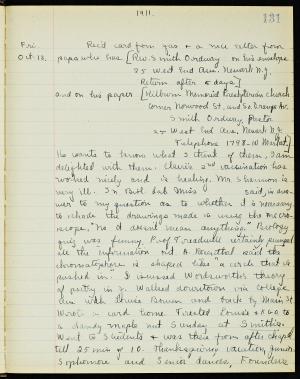 1911.
131
Fri. Rec'd card from Gus & a nice letter from
Oct. 13. papa who has [Rev. Smith Ordway on his envelope
25 West End Ave. Newark N.J.
Return after 5 days]
and on his paper [Kilburn Memorial Presbyterian Church
Corner Norwood St. and So. Orange Av.
Smith Ordway Pastor
25 West End Ave. Newark N.J.
Telephone 1798-
He wants to know what I think of them, I am
delighted with them. 2nd vaccination has
worked nicely and is healing. Mr. Shannon is
very ill. In Bot. Lab Miss said, in ans-
wer to my question as to whether it is necessary
to shade the drawings made in using the micro-
scope, "No it doesnt mean anything." Biology
quiz was funny. Prof. Treadwell certainly pumped
all the information out. A said the
chromatophore is shaped like a circle that is
pushed in. I discussed Wordsworth's theory
of poetry in Walked downtown via College
Ave with Louise Brown and back by Main St.
Wrote a card home. Treated Louise & to
a dandy maple nut Sunday at Smith's.
Went to Students & was there from after chapel
till 25 min of 10. Thanksgiving vacation, Junior
Sophomore and Senior dances, Founder's